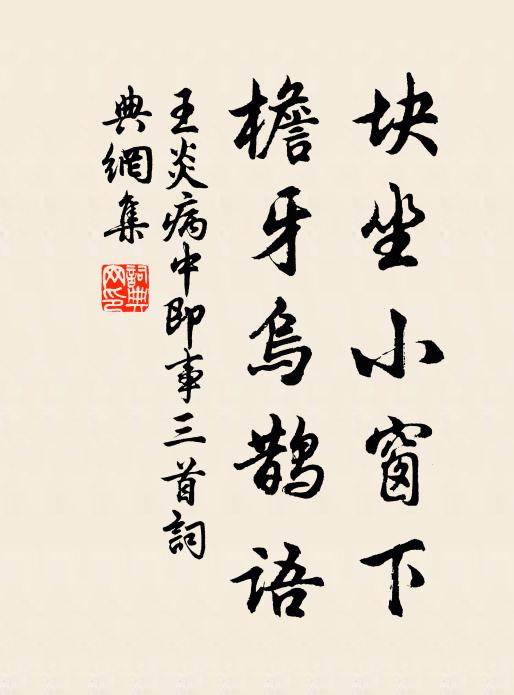 块坐小窗下
檐牙乌鹊语
王炎病中即事三首詞
典網集
詞典
网印